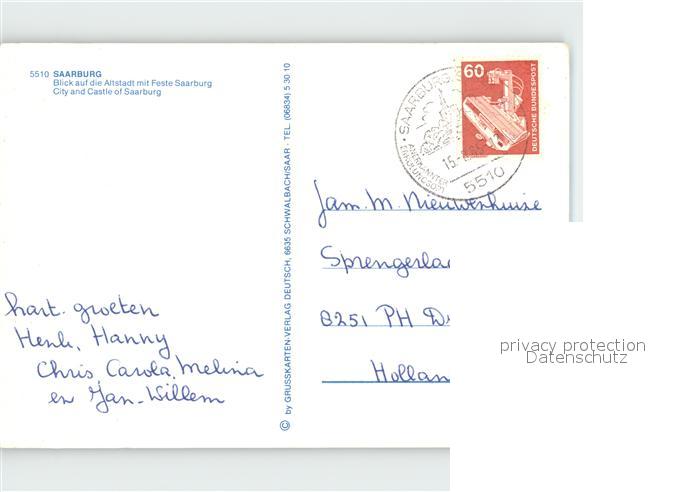 5510 SAARBURG
Blick auf die Altstadt mit Feste Saarburg
City and Castle of Saarburg
© by GRUSSKARTEN-VERLAG DEUTSCH, 6635 SCHWALBACH/SAAR · TEL. (06834) 5 30 10
60
DEUTSCHE BUNDESPOST
SAARBURG
ANERKANNTER
ERHOLUNGSORT
5510
Fam. M. Nieuwenhuize
Sprengerla
8251 PH D
Hollan
hart. groeten
Henk, Hanny
Chris, Carola, Melina
en Jan-Willem
privacy protection
Datenschutz